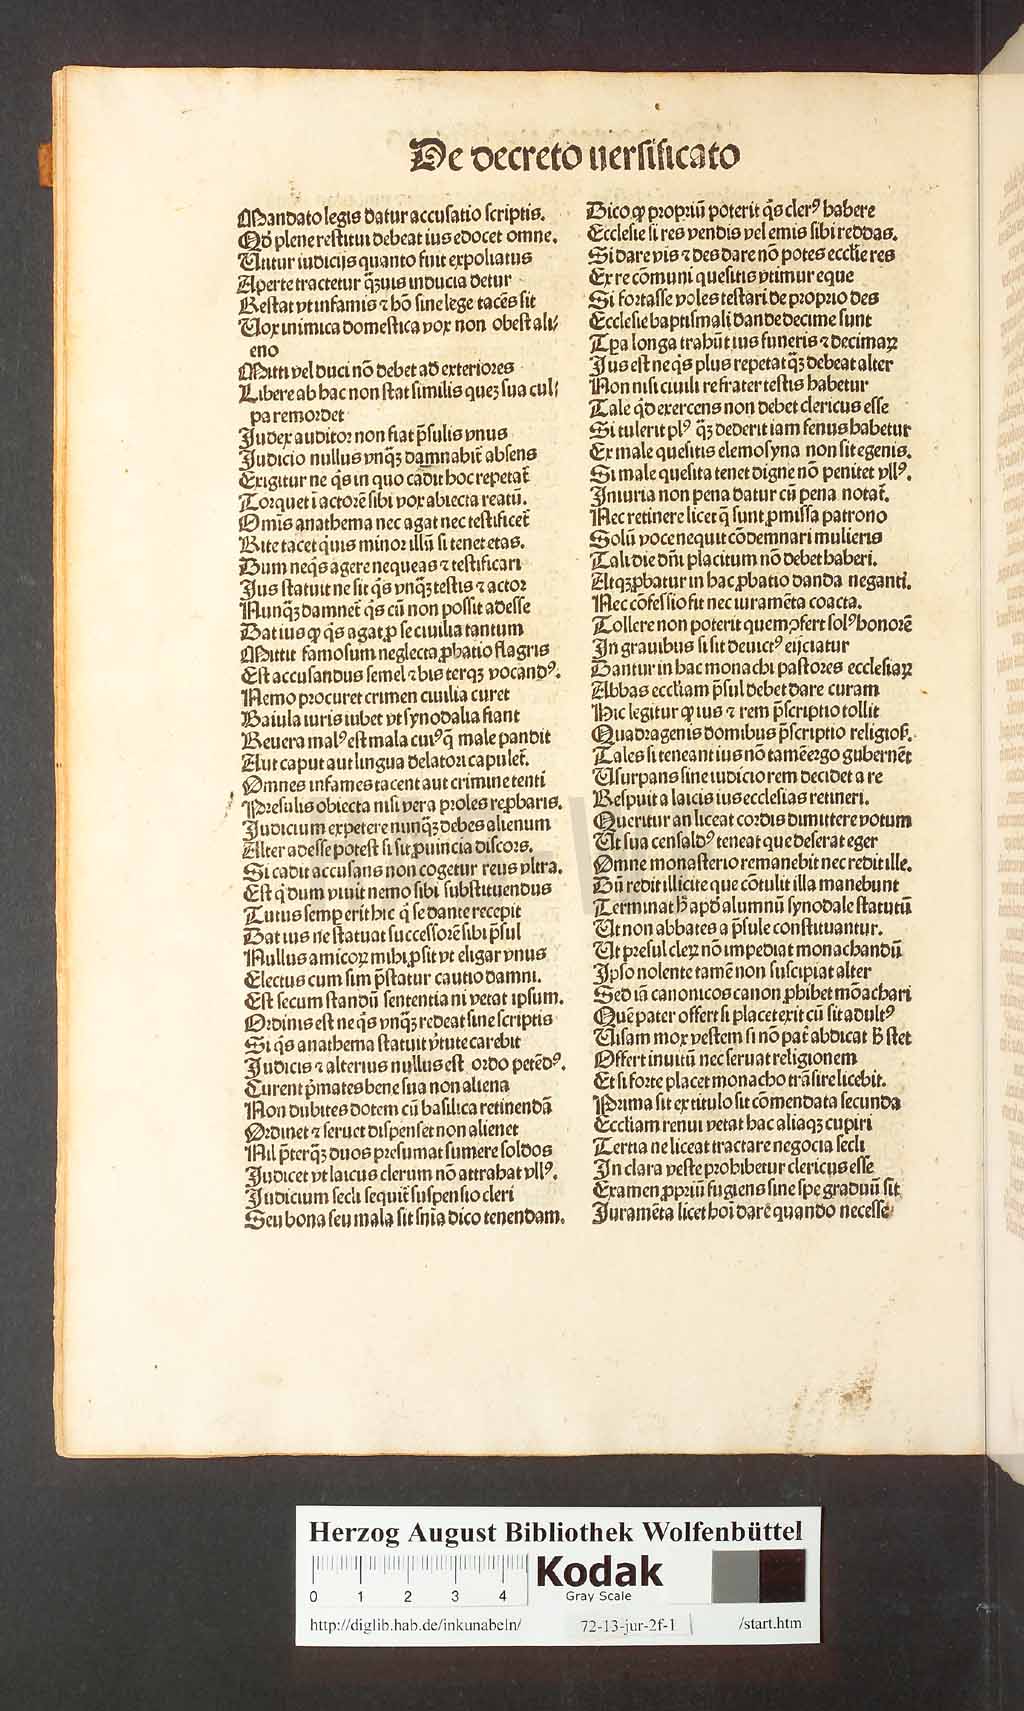 De decreto uersificato
Mandato legis datur accusatio scriptis.
Qd̓ plene restitui debeat ius edocet omne.
Utitur iudicijs quanto fuit expoliatus
Aperte tractetur qͣ̃uis inducia detur
Restat vt infamis ⁊ hō sine lege tacēs sit
Uox inimica domestica vox non obest ali⸗
eno
Mitti vel duci nō debet ad exteriores
Libere ab hac non stat similis queꝫ sua cul⸗
pa remordet
Judex auditor non fiat p̄sulis vnus
Judicio nullus vnqͣ̃ꝫ damnabit̄ absens
Exigitur ne q̇s in quo cadit hoc repetat̄
Torquet ī actorē sibi vox abiecta reatū.
Omīs anathema nec agat nec testificet̄
Rite tacet q̇uis minor illū si tenet etas.
Dum neq̇s agere nequeas ⁊ testificari
Jus statuit ne sit q̇s vnqͣ̃ꝫ testis ⁊ actor
Nunqͣ̃ꝫ damnet̄ q̇s cū non possit adesse
Dat ius ꝙ q̇s agat ꝓ se ciuilia tantum
Mittit famosum neglecta ꝓbatio flagris
Est accusandus semel ⁊ bis terqꝫ vocandꝰ.
Nemo procuret crimen ciuilia curet
Baiula iuris iubet vt synodalia fiant
Reuera malꝰ est mala cuiꝰ q̄ male pandit
Aut caput aut lingua delatori capulet̄.
Omnes infames tacent aut crimine tenti
Presulis obiecta nisi vera proles reꝓbaris.
Judicium expetere nunqͣ̃ꝫ debes alienum
Alter adesse potest si sit ꝓuincia discors.
Si cadit accusans non cogetur reus vltra.
Est q̇ dum viuit nemo sibi substituendus
Tutus semꝑ erit hic q̇ se dante recepit
Dat ius ne statuat successorē sibi p̄sul
Nullus amicoꝝ mihi ꝓsit vt eligar vnus
Electus cum sim p̄statur cautio damni.
Est secum standū sententia ni vetat ipsum.
Ordinis est ne q̇s vnqͣ̃ꝫ redeat sine scriptis
Si q̇s anathema statuit v̓tute carebit
Judicis ⁊ alterius nullus est ordo petēdꝰ.
Curent p̓mates bene sua non aliena
Non dubites dotem cū basilica retinendā
Ordinet ⁊ seruet dispenset non alienet
Nil p̄terqͣ̃ꝫ duos presumat sumere soldos
Judicet vt laicus clerum nō attrahat vllꝰ.
Judicium secli sequit̄ suspensio cleri
Seu bona seu mala sit sn̄ia dico tenendam.
Dico ꝙ propriū poterit q̇s clerꝰ habere
Ecclesie si res vendis vel emis sibi reddas.
Si dare vis ⁊ des dare nō potes ecclīe res
Ex re cōmuni quesitis vtimur eque
Si fortasse voles testari de proprio des
Ecclesie baptismali dande decime sunt
Tp̄a longa trahūt ius funeris ⁊ decimaꝝ
Jus est ne q̇s plus repetat qͣ̃ꝫ debeat alter
Non nisi ciuili refrater testis habetur
Tale q̇d exercens non debet clericus esse
Si tulerit plꝰ qͣ̃ꝫ dederit iam fenus habetur
Ex male quesitis elemosyna non sit egenis.
Si male quesita tenet digne nō penitet vllꝰ.
Iniuria non pena datur cū pena notat̄.
Nec retinere licet q̄ sunt ꝓmissa patrono
Solū voce nequit cōdemnari mulieris
Tali die dn̄i placitum nō debet haberi.
Atqꝫ ꝓbatur in hac ꝓbatio danda neganti.
Nec cōfessio fit nec iuramēta coacta.
Tollere non poterit quem ↄfert solꝰ honorē
In grauibus si sit deuictꝰ eijciatur
Dantur in hac monachi pastores ecclesiaꝝ
Abbas eccl̄iam p̄sul debet dare curam
Hic legitur ꝙ ius ⁊ rem p̄scriptio tollit
Quadragenis domibus p̄scriptio religiosꝭ.
Tales si teneant ius nō tamē ergo gubernēt
Usurpans sine iudicio rem decidet a re
Respuit a laicis ius ecclesias retineri.
Queritur an liceat cordis dimittere votum
Ut sua censaldꝰ teneat que deserat eger
Omne monasterio remanebit nec redit ille.
Dū redit illicite que cōtulit illa manebunt
Terminat h̄ apd̓ alumnū synodale statutū
Ut non abbates a p̄sule constituantur.
Ut presul cleꝝ nō impediat monachandū
Ipso nolente tamē non suscipiat alter
Sed iā canonicos canon ꝓhibet mōachari
Quē pater offert si placet exit cū sit adultꝰ
Uisam mox vestem si nō pat̄ abdicat h̄ stet
Offert inuitū nec seruat religionem
Et si forte placet monacho trāsire licebit.
Prima sit ex titulo sit cōmendata secunda
Eccl̄iam renui vetat hac aliaqꝫ cupiri
Tertia ne liceat tractare negocia secli
In clara veste prohibetur clericus esse
Examen ꝓpriū fugiens sine spe graduū sit
Juramēta licet hoī dare quando necesse
Herzog August Bibliothek Wolfenbüttel
0 1 2 3 4
Kodak
Gray Scale
http://diglib.hab.de/inkunabeln/ 72-13-jur-2f-1 /start.htm